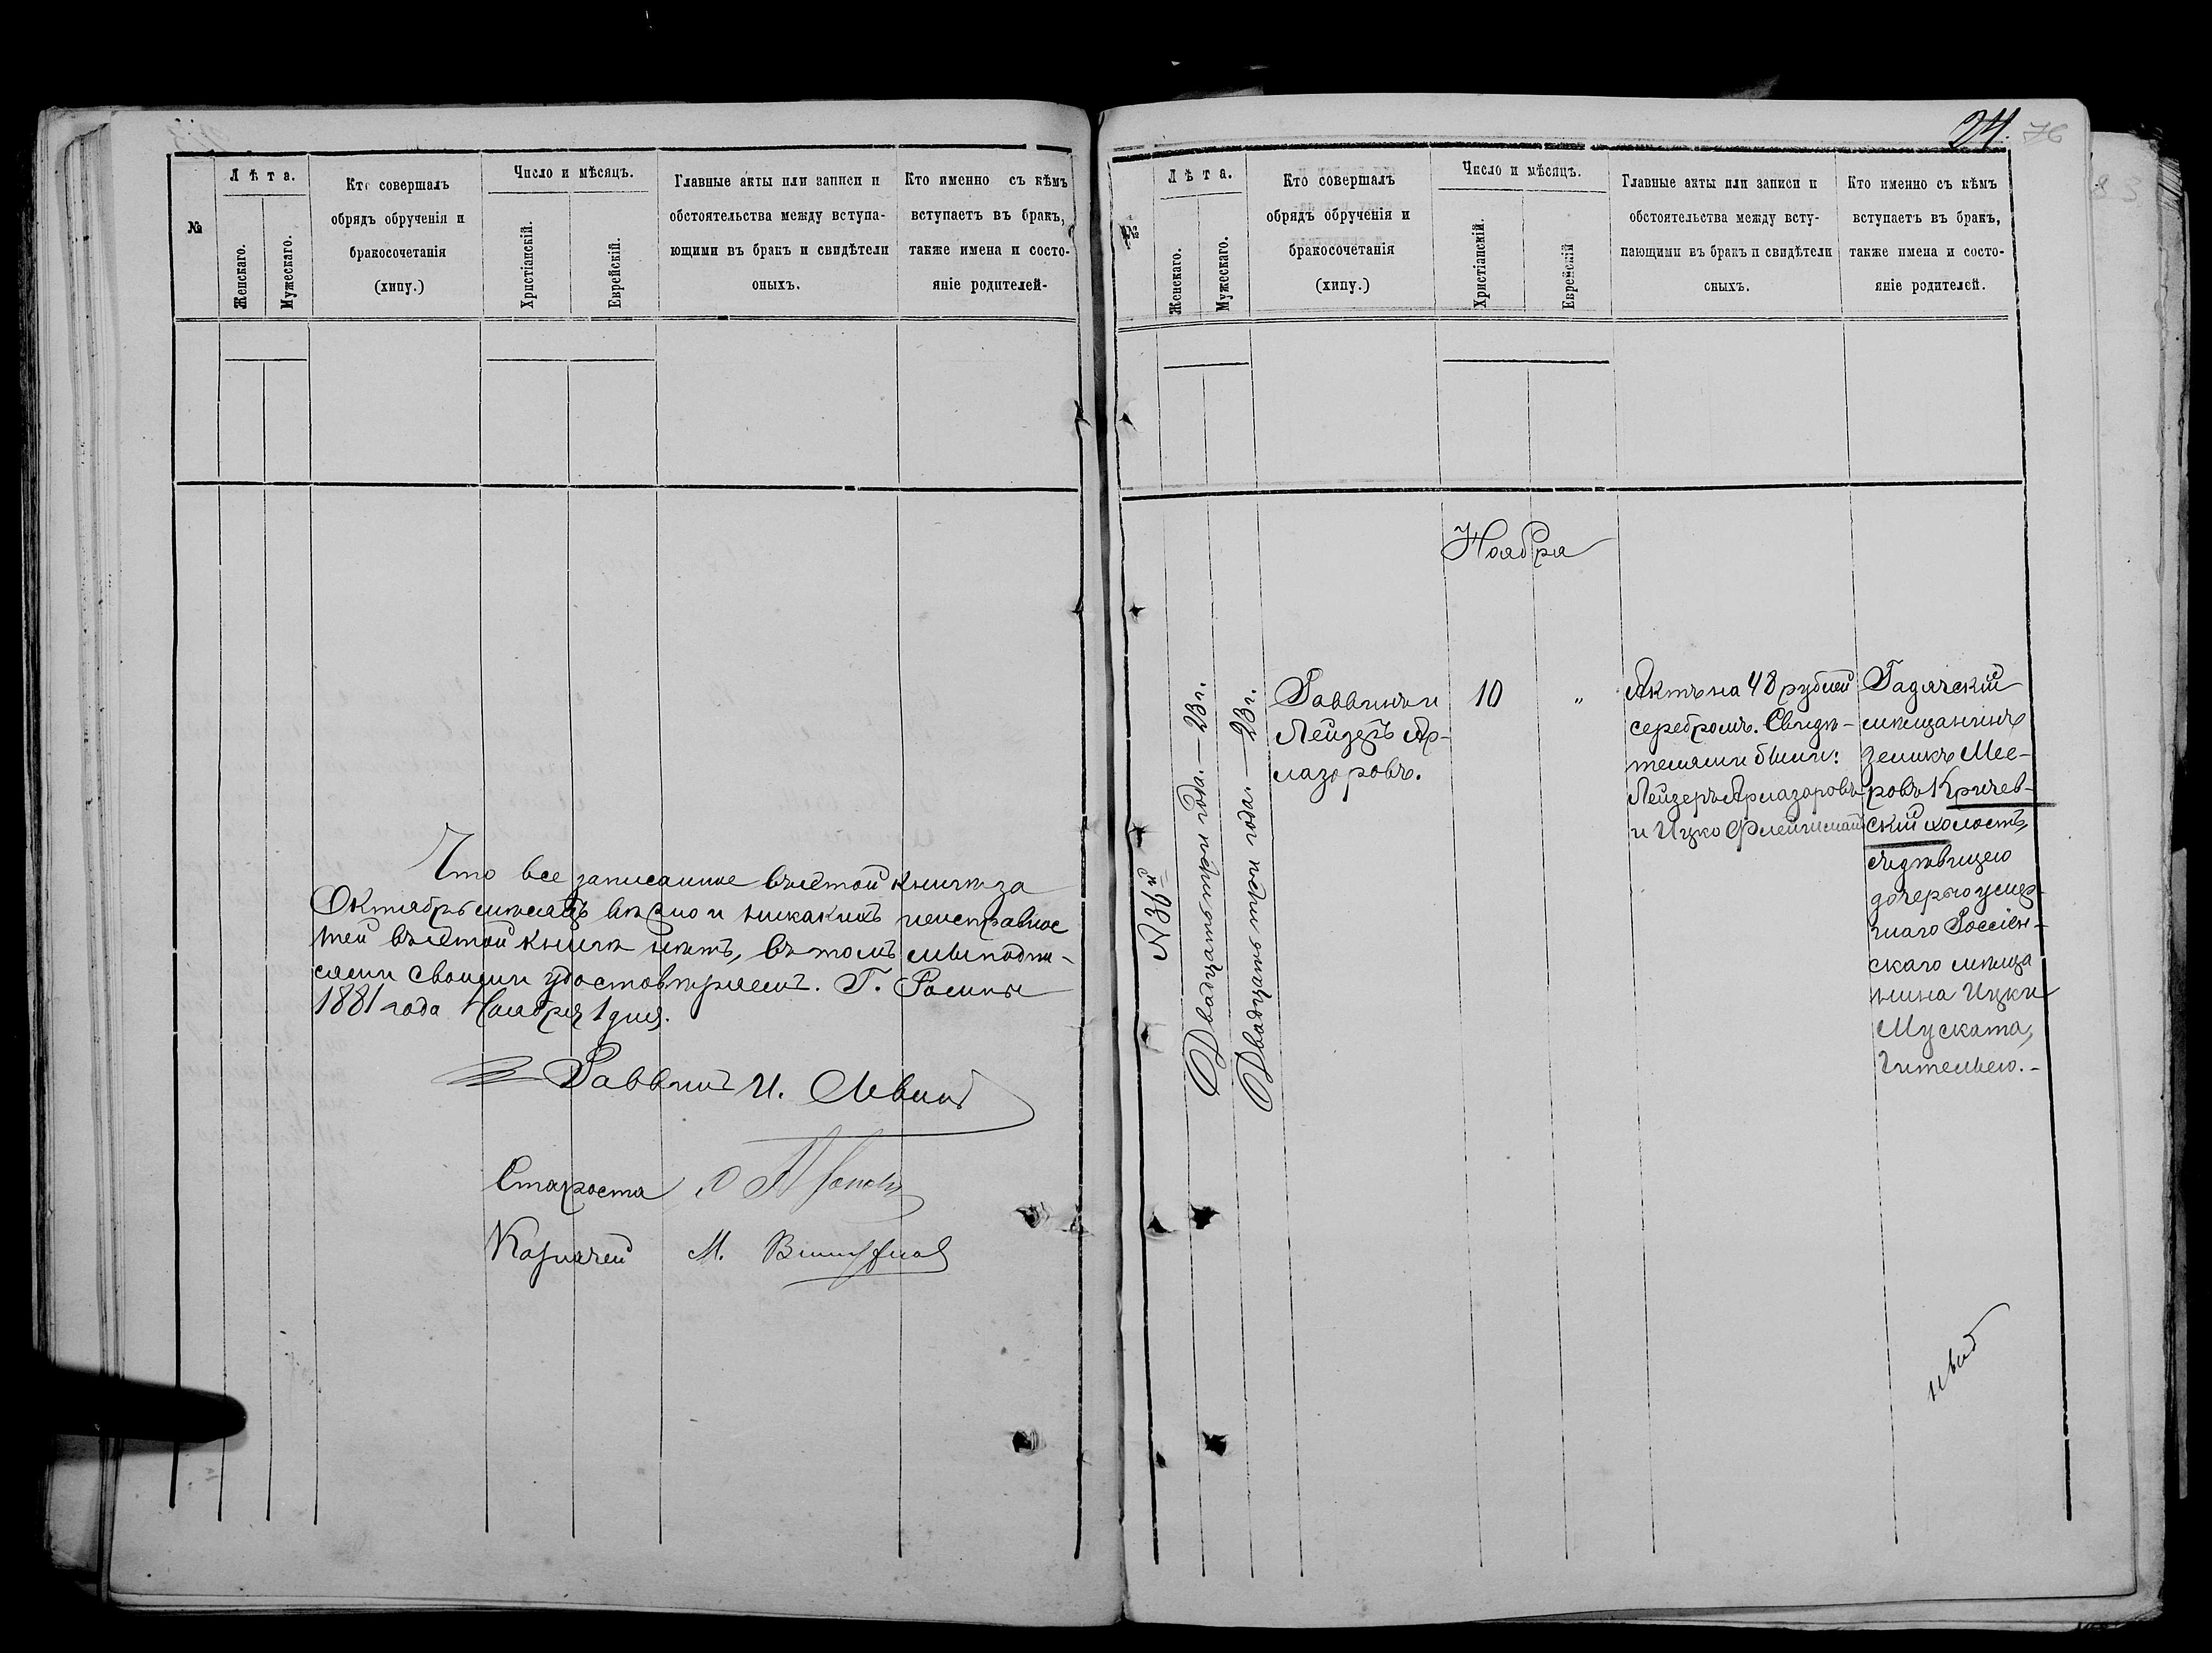 №
Лѣта.
Женскаго.
Мужескаго.
Кто совершалъ
обрядъ обрученія и
бракосочетанія
(хипу.)
Число и мѣсяцъ.
Христіанскій.
Еврейскій.
Главные акты или записи и
обстоятельства между вступа-
ющими въ бракъ и свидѣтели
оныхъ.
Кто именно съ кѣмъ
вступаетъ въ бракъ,
также имена и состо-
яніе родителей-
Что все записанное въ этой книгѣ за
Октябрь мѣсяцъ вѣрно и никакихъ неисправнос
тей въ этой книгѣ нѣтъ, въ томъ мы подпи-
сями своими удостовѣряемъ. Г. Ромны
1881 года Ноября 1 дня.
Раввинъ И. Левинъ
Староста
Казначей М.
24. 76
№
Лѣта.
Женскаго.
Мужескаго.
Кто совершалъ
обрядъ обрученія и
бракосочетанія
(хипу.)
Число и мѣсяцъ.
Христіанскій.
Еврейскій
Главные акты или записи и
обстоятельства между всту-
пающими въ бракъ и свидѣтели
сныхъ.
Кто именно съ кѣмъ
вступаетъ въ бракъ,
также имена и состо-
яніе родителей.
Ноября
№36й
Двадцать три года. — 23 г.
Двадцать три года. — 23 г.
Раввинъ и
Лейзеръ Ар-
лазоровъ.
10
"
Актъ на 48 рублей
серебромъ. Свидѣ-
телями были:
Лейзеръ Арлазоровъ
и Ицко Флейшманъ
Гадячскій
мѣщанинъ
Зеликъ Мее-
ровъ Кричев-
скій холостъ,
съ дѣвицею
дочерью умер-
шаго Россіен-
скаго мѣща
нина Ицки
Муската,
Гителью.-